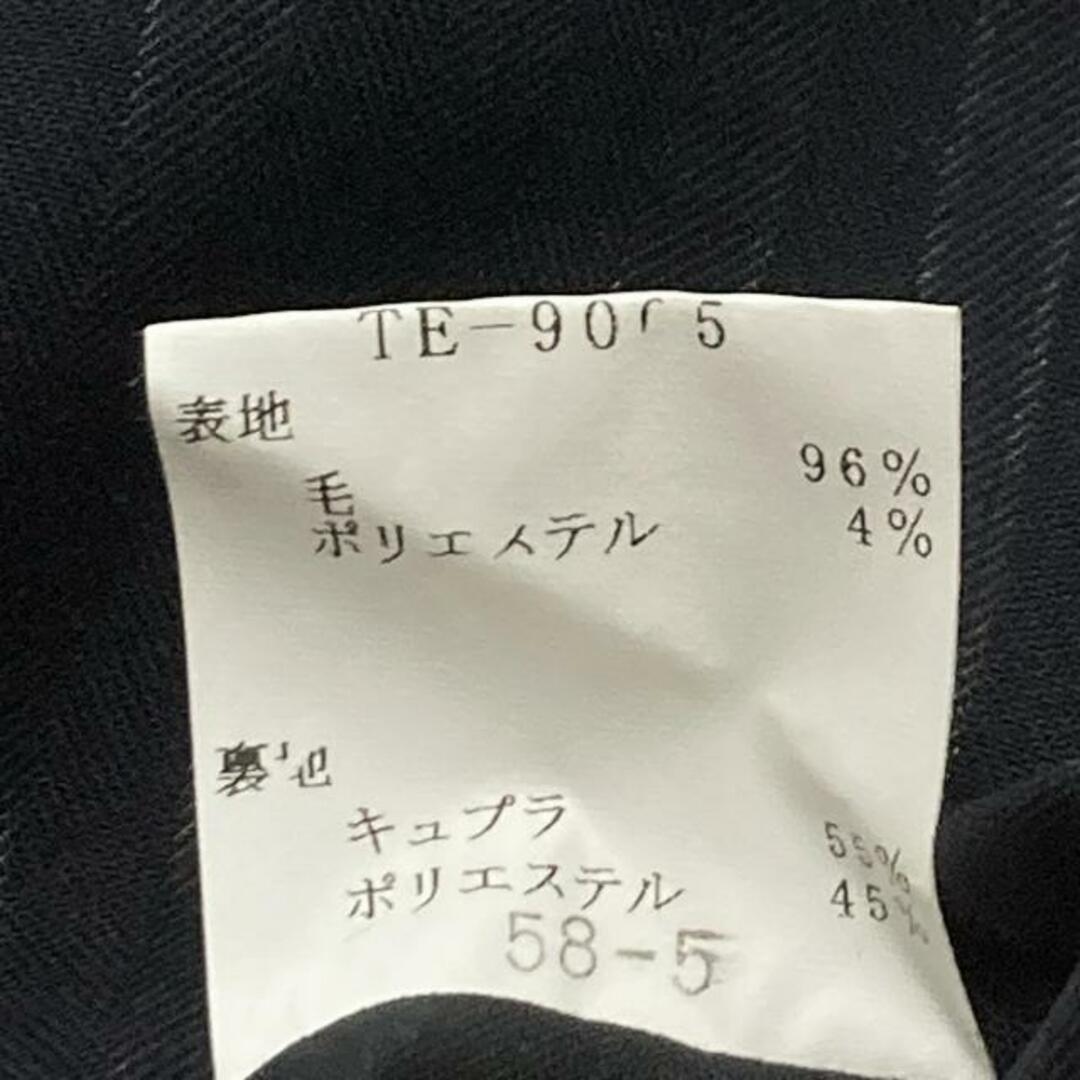 表地
毛 96%
ポリエステル 4%
裏地
キュプラ 55%
ポリエステル 45%
58-5